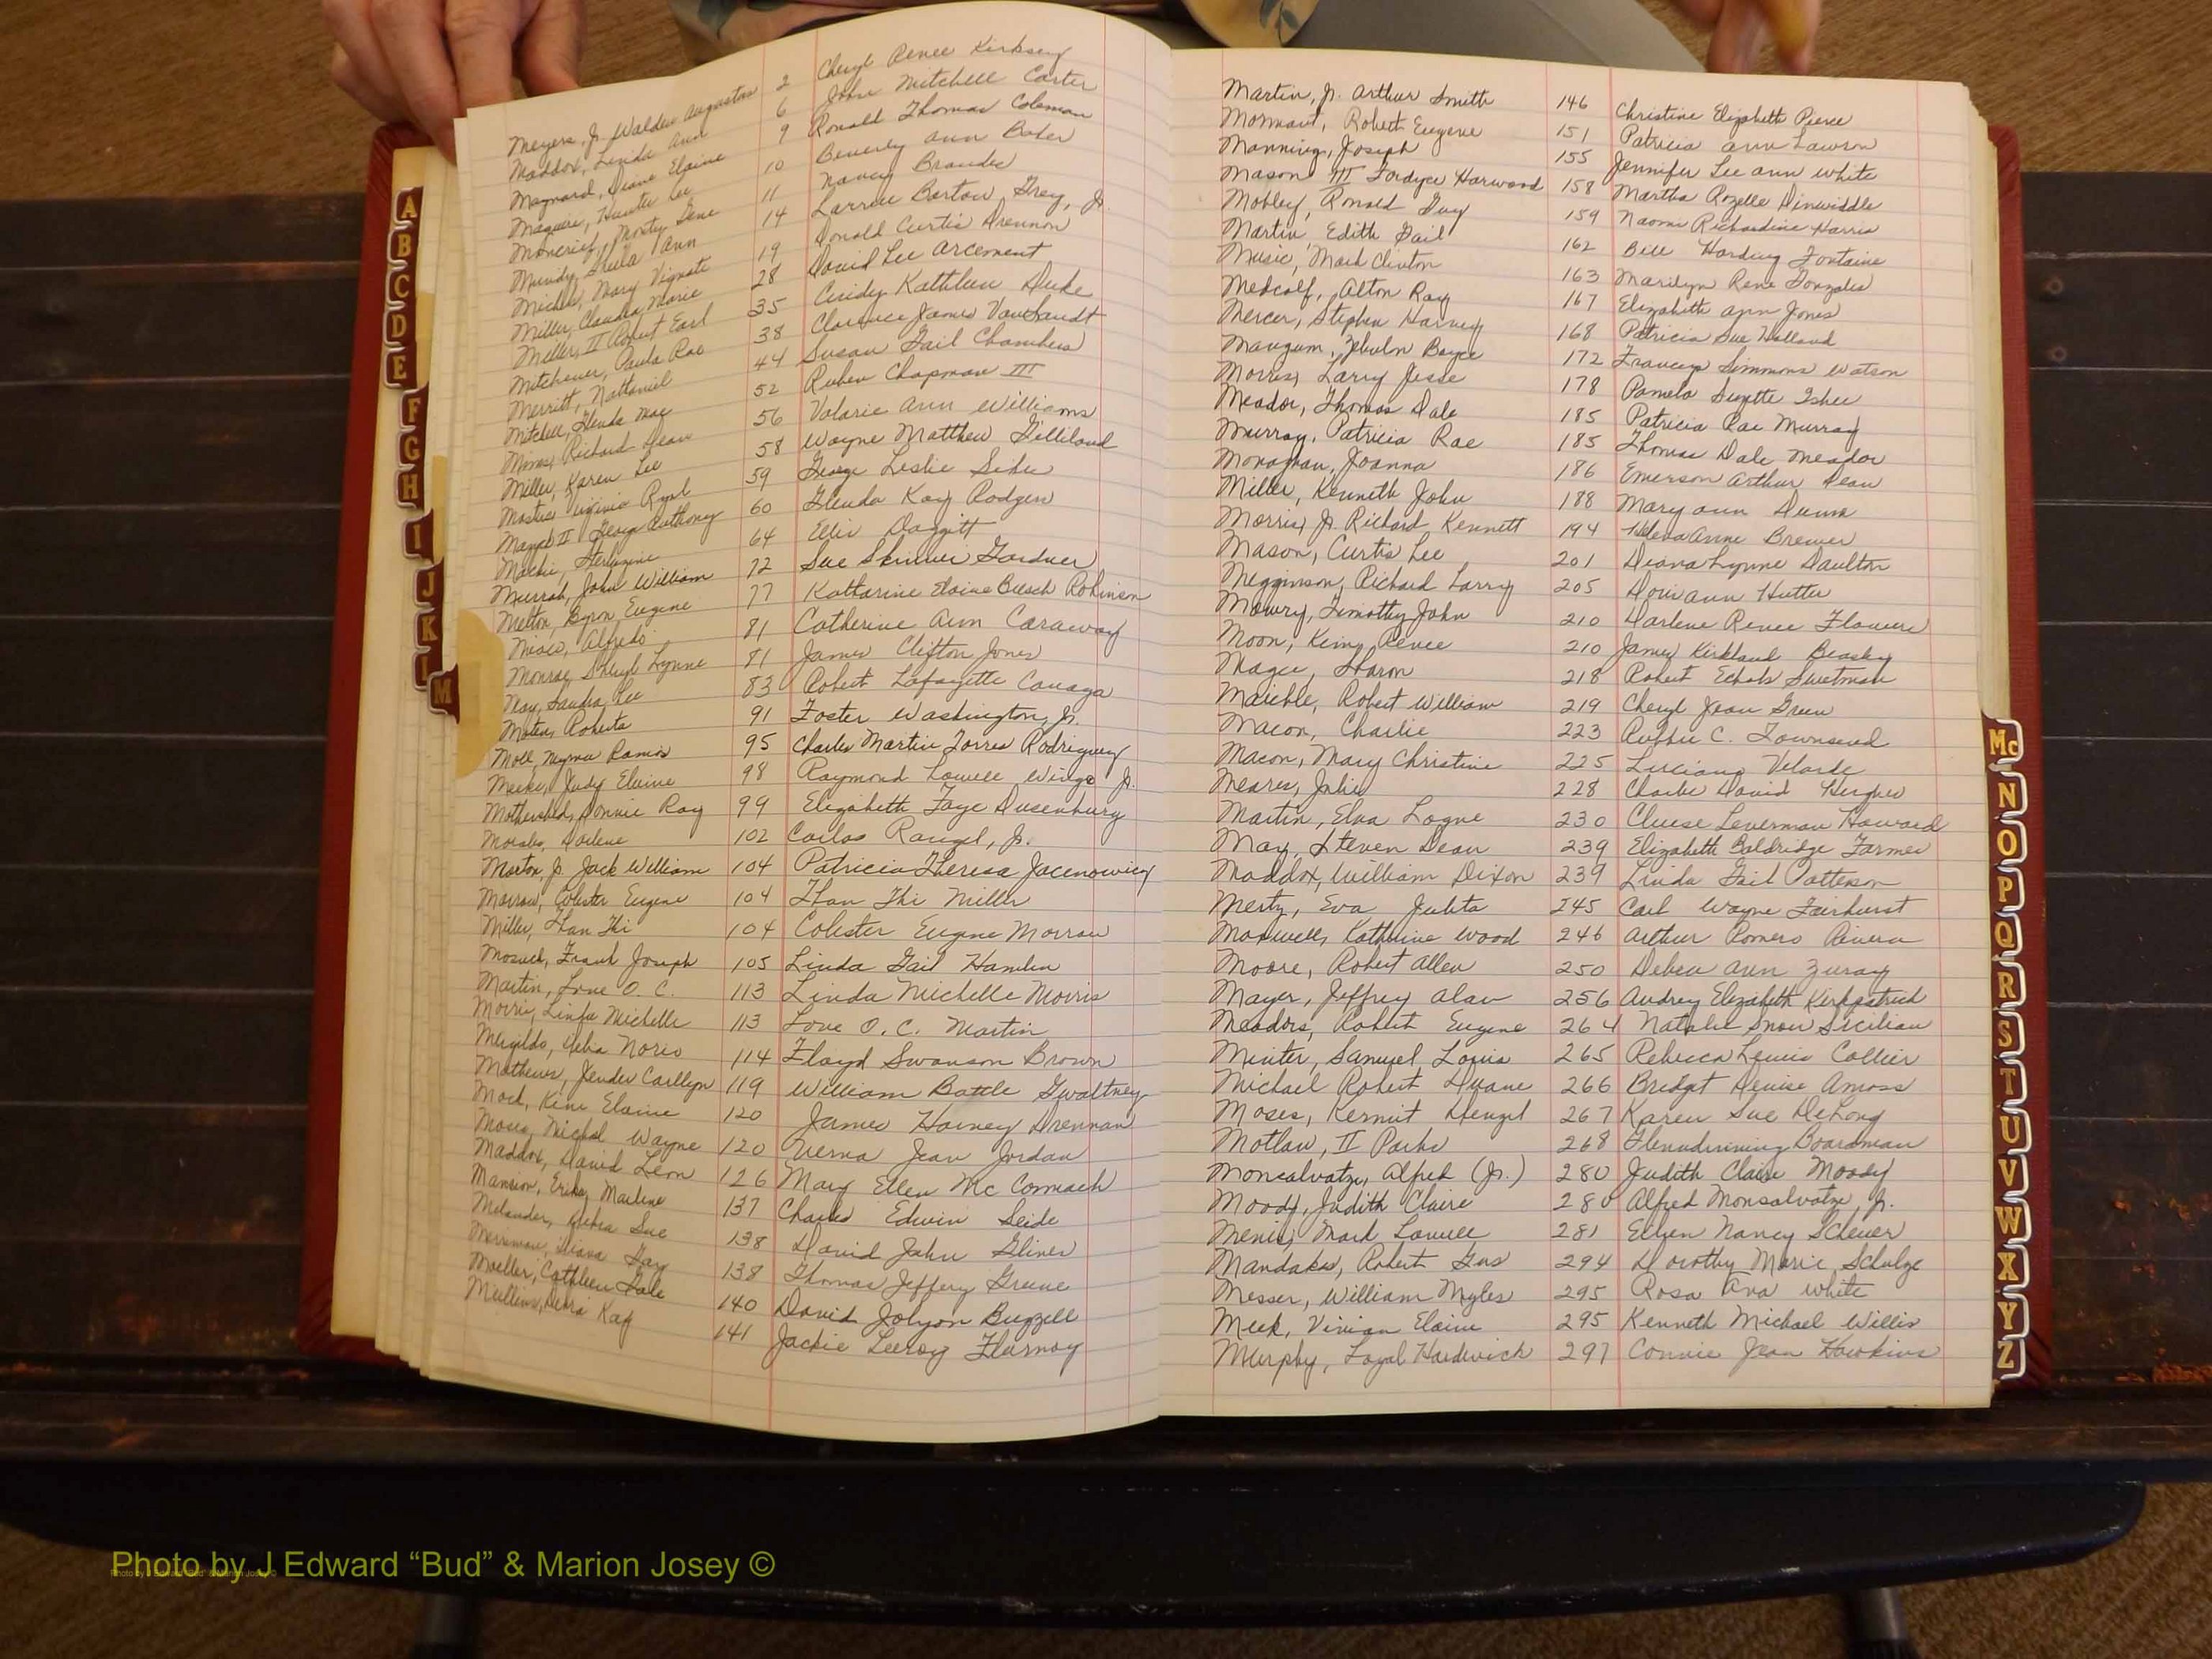 Meyers, Jr. Walder Augustas 2 Cheryl Renee Kirksey
Maddox, Linda Ann 6 John Mitchell Carter
Maynard, Diane Elaine 9 Ronald Thomas Coleman
Maguire, Hunter Lee 10 Beverly Ann Baker
Moncrief, Monty Gene 11 Nancy Brandes
Mundy, Sheila Ann 14 Larrie Bartow Grey, Jr
Michel, Mary Vignate 19 Donald Curtis Drennon
Miller, Claudia Marie 28 David Lee Arcement
Miller, II Robert Earl 35 Cindy Kathleen Duke
Mitchener, Paula Rae 38 Clarence James VanSandt
Merritt, Nathaniel 44 Susan Gail Chambers
Mitchell, Glenda Mae 52 Ruben Chapman III
Mims, Richard Dean 56 Valarie Ann Williams
Miller, Karen Lee 58 Wayne Matthew Gilliland
Virginia 59 George Leslie
II George Anthony 60 Glenda Kay Rodgers
64 Ellie Daggitt
Murrah, John William 72 Sue Skinner Gardner
Melton, Byron Eugene 77 Katharine Elaine Robinson
Alfredo 81 Catherine Ann Caraway
Monroe, Sheryl Lynne 81 James Clifton Jones
May, Sandra Lee 83 Robert Lafayette
Roberta 91 Foster Washington, Jr.
Moll, Ramos 95 Charles Martin Torres Rodriguez
Meeks, Judy Elaine 98 Raymond Lowell Wingo Jr.
Mothershed, Donnie Ray 99 Elizabeth Faye Dusenbury
Darlene 102 Carlos Rangel, Jr.
Morton, Jr. Jack William 104 Patricia Theresa
Morrow, Colester Eugene 104 Than Thi Miller
Miller, Than Thi 104 Colester Eugene Morrow
Frank Joseph 105 Linda Gail Hamlin
Martin, Love O. C. 113 Linda Michelle Morris
Morris, Linda Michelle 113 Love O. C. Martin
Delia 114 Floyd Swanson Brown
Mathews, 119 William Battle Gwaltney
Mock, Kim Elaine 120 James Harvey Drennan
Moses, Michal Wayne 120 Verna Jean Jordan
Maddox, David Leon 126 Mary Ellen McCormack
Manson, Erika Marlene 137 Charles Edwin Seide
Melander, Debra Sue 138 David John Gliner
Merriman, Diana Gay 138 Thomas Jeffery Greene
Mueller, Cathleen Gale 140 David Jolyon Buzzell
Mullins, Debra Kay 141 Jackie Leeroy Flurnoy
A
B
C
D
E
F
G
H
I
J
K
L
M
Martin, Jr. Arthur Smith 146 Christine Elizabeth Pierce
Robert Eugene 151 Patricia Ann Lawson
Manning, Joseph 155 Jennifer Lee Ann White
Mason III Fordyce Harwood 158 Martha Rozelle Dinwiddie
Mobley, Ronald Guy 159 Naomi Richardine Harris
Martin, Edith Gail 162 Bill Harding Fontaine
Music, Mark Clinton 163 Marilyn Rene Gonzales
Medcalf, Alton Ray 167 Elizabeth Ann Jones
Mercer, Stephen Harvey 168 Patricia Sue Holland
Mangum, Boyce 172 Frances Simmons Watson
Morris, Larry Jesse 178 Pamela Suzette Ishee
Meador, Thomas Dale 185 Patricia Rae Murray
Murray, Patricia Rae 185 Thomas Dale Meador
Monaghan, Joanna 186 Emerson Arthur Dean
Miller, Kenneth John 188 Mary Ann Dunn
Morris, Jr. Richard Kennett 194 Anne Brewer
Mason, Curtis Lee 201 Diana Lynne Daulton
Megginson, Richard Larry 205 Ann Hutter
Mowry, Timothy John 210 Darlene Renee Flowers
Moon, Kim Renee 210 James Kirkland Beasley
Magee, Sharon 218 Robert Echols Swetman
Marble, Robert William 219 Cheryl Jean Green
Macon, Charlie 223 Ruthie C. Townsend
Macon, Mary Christine 225 Luciano Velarde
Meares, Julie 228 Charles David Hughes
Martin, Elva Logue 230 Cluese Leverman Howard
May, Steven Dean 239 Elizabeth Baldridge Farmer
Maddox, William Dixon 239 Linda Gail Patterson
Mertz, Eva Julita 245 Carl Wayne Fairhurst
Maxwell, Katherine Wood 246 Arthur Romero Rivera
Moore, Robert Allen 250 Debra Ann Zuray
Mayer, Jeffrey Alan 256 Audrey Elizabeth Kirkpatrick
Meadors, Robert Eugene 264 Natalie Snow Sicilian
Minter, Samuel Louis 265 Rebecca Lewis Collier
Michael Robert Duane 266 Bridget Denise Amoss
Moses, Kermit Denzel 267 Karen Sue DeLong
Motlow, II Parks 268 Boardman
Monsalvatge, Alfred (Jr.) 280 Judith Claire Moody
Moody, Judith Claire 280 Alfred Monsalvatge, Jr.
Menis, Mark Lowell 281 Ellen Nancy Scheuer
Mandakas, Robert Gus 294 Dorothy Marie Schulze
Messer, William Myles 295 Rosa Ava White
Meek, Vivian Elaine 295 Kenneth Michael Willis
Murphy, Loyal Hardwick 297 Connie Jean Hawkins
Mc
N
O
P
Q
R
S
T
U
V
W
X
Y
Z
Photo by J Edward “Bud” & Marion Josey ©
Photo by J Edward “Bud” & Marion Josey ©